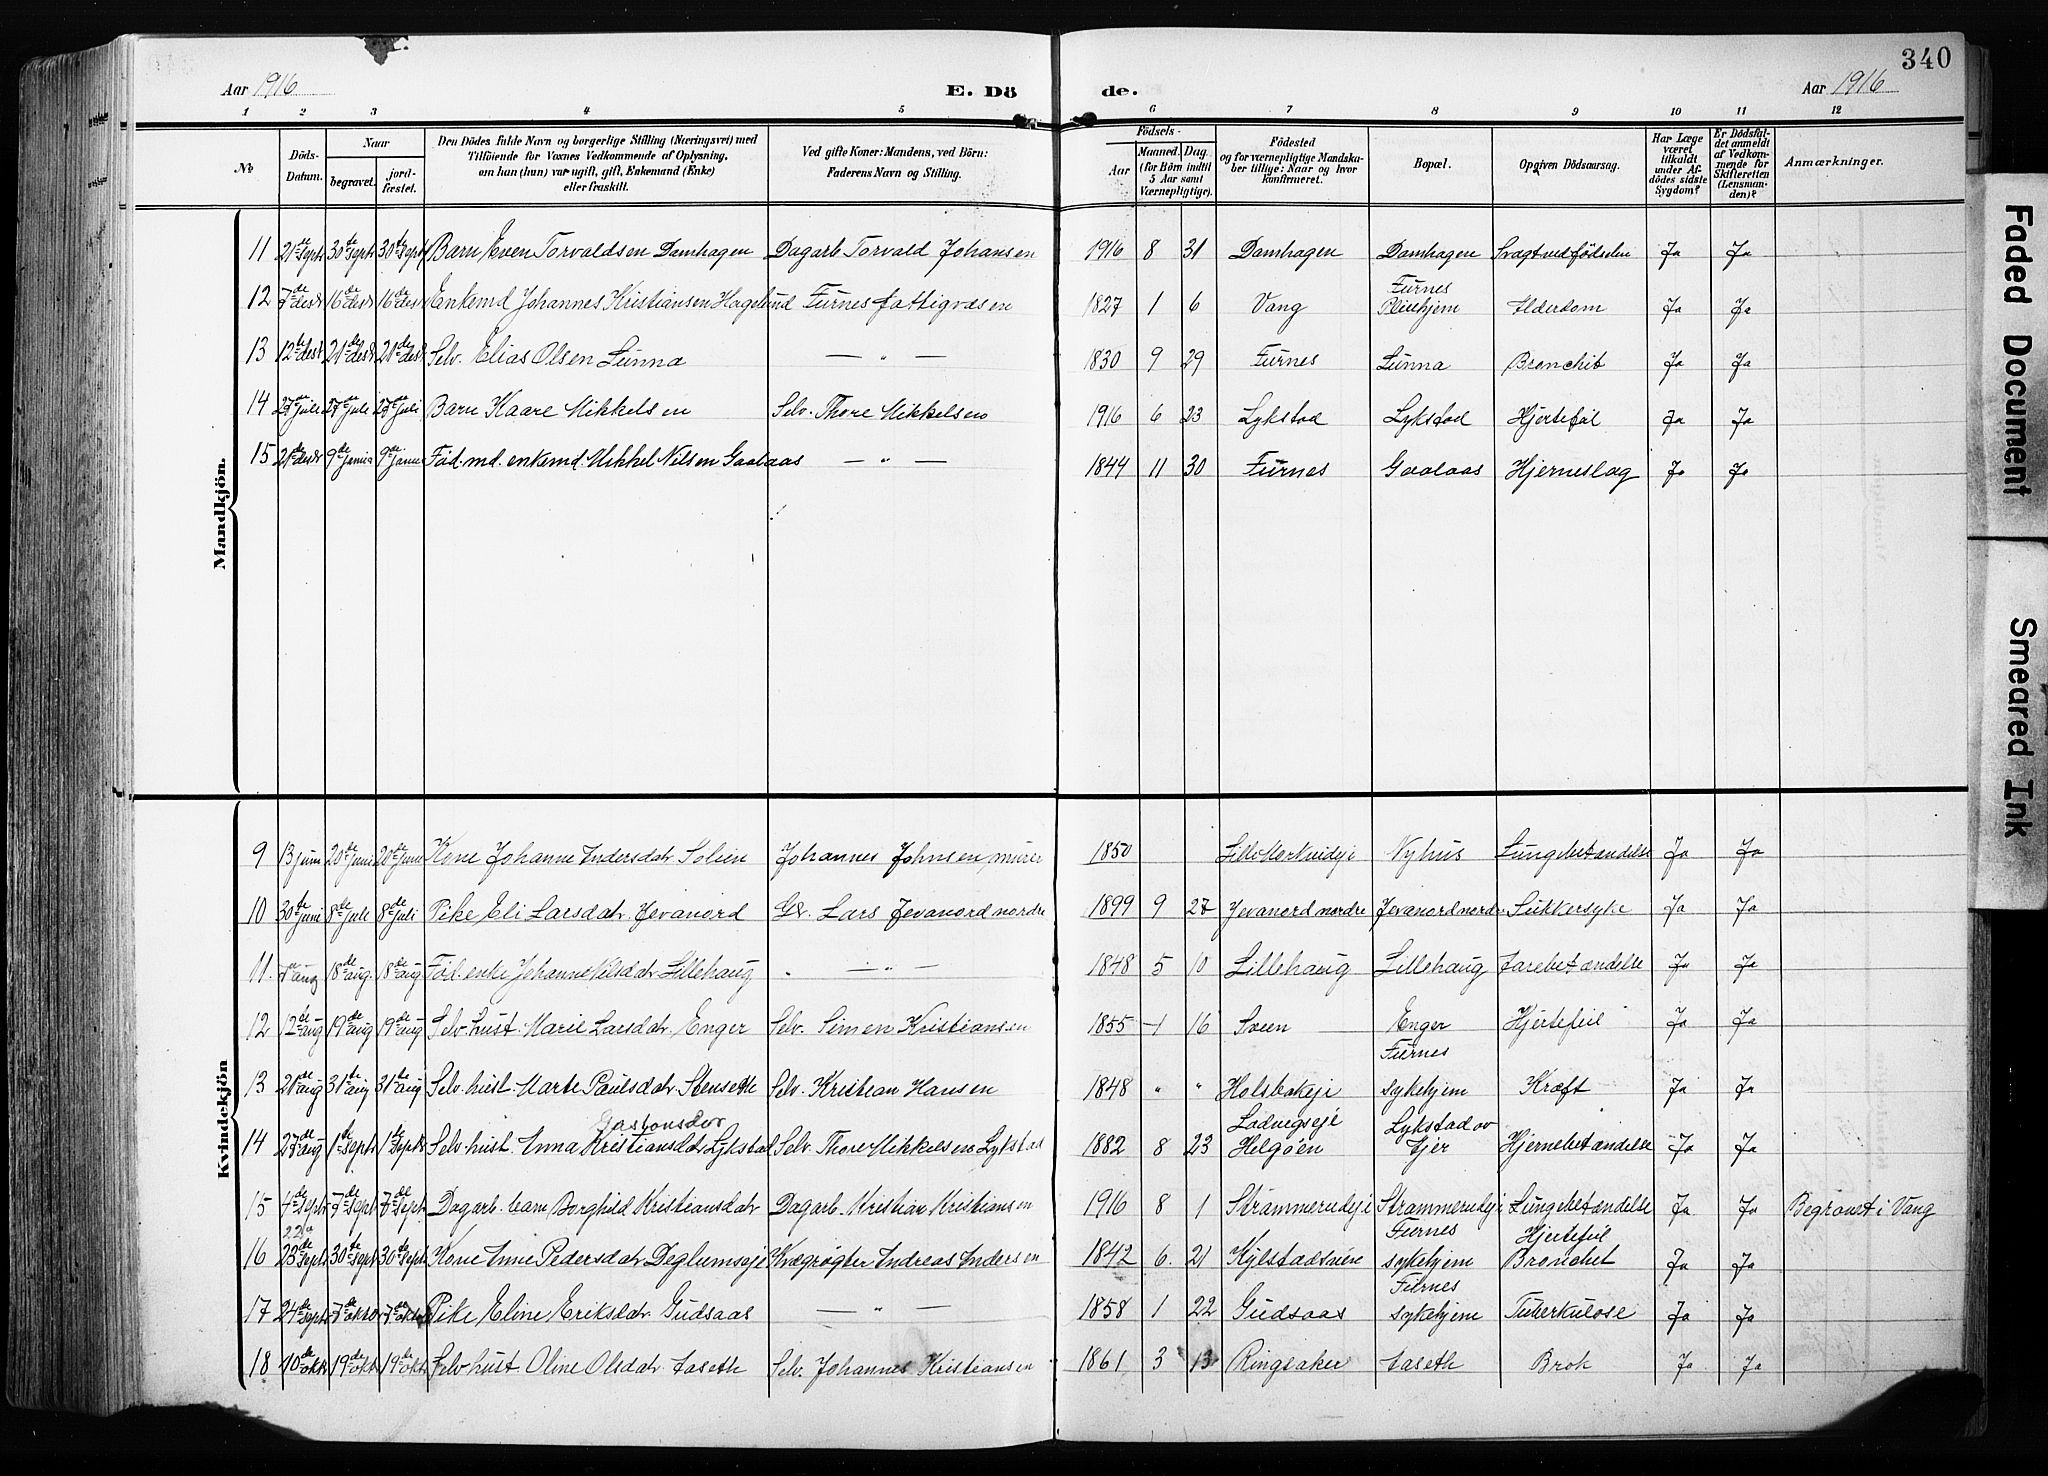 340
Aar 1916 E. Dö de. Aar 1916
1 2 3 4 5 6 7 8 9 10 11 12
No
Döds-Datum.
Naar
begravet.
jord-fæstet.
Den Dödes fulde Navn og borgerlige Stilling (Næringsvei) med
Tilföiende for Voxnes Vedkommende af Oplysning,
om han (hun) var ugift, gift, Enkemand (Enke)
eller fraskilt.
Ved gifte Koner: Mandens, ved Börn:
Faderens Navn og Stilling.
Födsels-
Aar
Maaned. Dag
(for Börn indtil
5 Aar samt
Værnepligtige).
Födested
og for værnepligtige Mandska-
ber tillige: Naar og hvor
konfirmeret.
Bopæl.
Opgiven Dödsaarsag.
Har Læge
været
tilkaldt
under Af-
dödes sidste
Sygdom?
Er Dödsfal-
det anmeldt
af Vedkom-
mende for
Skifteretten
(Lensman-
den)?
Anmærkninger.
Mandkjön.
11 21de Septr 30de Septr 30de Septr Barn Even Torvaldsen Damhagen Dagarb. Torvald Johansen 1916 8 31 Damhagen Damhagen Svagt ved födselen Ja Ja
12 7de desr 16de desr 16de desr Enkemd Johannes Kristiansen Hagelund Furnes fattigvæsen 1827 1 6 Vang Furnes Pleiehjem Alderdom Ja Ja
13 12te desr 21de desr 21de desr Selv. Elias Olsen Lunna — " — 1830 9 29 Furnes Lunna Bronchit Ja Ja
14 27de juli 27de juli 27de juli Barn Kaare Mikkelsen Selv. Thore Mikkelsen 1916 6 23 Lykstad Lykstad Hjertefeil Ja Ja
15 21de desr 9de januar 9de januar Föd. md. enkemd. Mikkel Nilsen Gaalaas — " — 1844 11 30 Furnes Gaalaas Hjerneslag Ja Ja
Kvindekjön
9 13 juni 20de juni 20de juni Kone Johanne Andersdatr Solien Johannes Johnsen, murer 1850 Nyhus Lungebetændelse Ja Ja
10 30te juni 8de juli 8de juli Pike Eli Larsdatr Jevanord Gb. Lars Jevanord nordre 1899 9 27 Jevanord nordre Jevanord nordr. Sukkersyke Ja Ja
11. aug 18de aug. 18de aug Föd. enke Johanne Lillehaug — " — 1848 5 10 Lillehaug Lillehaug Ja Ja
12 12te aug 19de aug 19de aug Selv. hust. Marie Larsdatr Enger Selv. Simen Kristiansen 1855 1 16 Sveen Enger Hjertefeil Ja Ja
13 21de aug 31te aug 31te aug Selv. hust. Marte Paulsdatr Stenseth Selv. Kristian Hansen 1848 " " Holsbakeje Furnes sykehjem Kræft Ja Ja
14 27de aug 1ste Septr 1ste Septr Selv. hust. Anna Kristiansdatr Lykstad Selv. Thore Mikkelsen Lykstad 1882 8 23 Helgöen Lykstad Hjernebetændelse Ja Ja
15 4de Septr 7de Septr 7de Septr Dagarb. barn Borghild Kristiansdatr Dagarb. Kristian Kristiansen 1916 8 1 Strammerudeje Strammerudeje Lungebetændelse Ja Ja Begravet i Vang
16 22 23de Septr 30te Septr 30te Septr Kone Anne Pedersdatr Deglumseje Kvægrögter Andreas Andersen 1842 6. 21 Kylstadsveen Furnes sykehjem Hjertefeil Bronchit Ja Ja
17 24de Septr 7de oktbr 7de oktbr Pike Eline Eriksdatr Gudsaas — " — 1858 1 22 Gudsaas Furnes sykehjem Tuberkulose Ja Ja
18 10de oktr 19de oktr 19de oktr Selv. hust Oline Olsdatr Aaseth Selv. Johannes Kristiansen 1861 3 13 Ringsaker Aaseth Brok Ja Ja
Faded Document
Smeared Ink